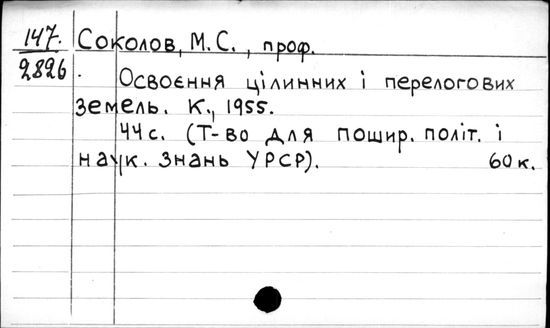 147. Соколов, М.С., проф.
2826
Освоєння цілинних і перелогових
земель. К., 1955.
44 с. (Т-во для пошир. політ. і
наук. знань УРСР). 60 к.